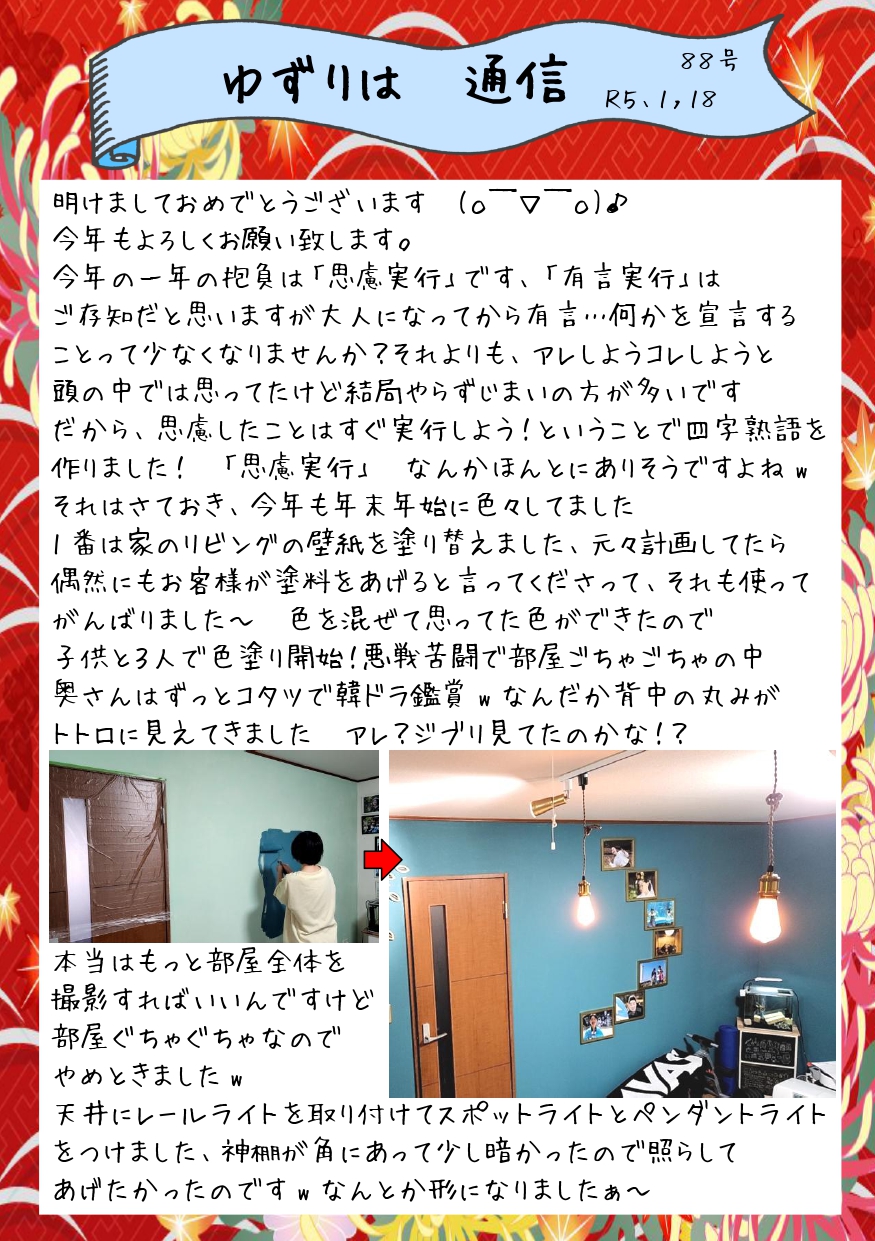 ゆずりは 通信
88号
R5、1，18
明けましておめでとうございます (o￣▽￣o)♪
今年もよろしくお願い致します。
今年の一年の抱負は「思慮実行」です、「有言実行」は
ご存知だと思いますが大人になってから有言…何かを宣言する
ことって少なくなりませんか？それよりも、アレしようコレしようと
頭の中では思ってたけど結局やらずじまいの方が多いです
だから、思慮したことはすぐ実行しよう！ということで四字熟語を
作りました！ 「思慮実行」 なんかほんとにありそうですよねｗ
それはさておき、今年も年末年始に色々してました
1番は家のリビングの壁紙を塗り替えました、元々計画してたら
偶然にもお客様が塗料をあげると言ってくださって、それも使って
がんばりました～ 色を混ぜて思ってた色ができたので
子供と3人で色塗り開始！悪戦苦闘で部屋ごちゃごちゃの中
奥さんはずっとコタツで韓ドラ鑑賞ｗなんだか背中の丸みが
トトロに見えてきました アレ？ジブリ見てたのかな！？
本当はもっと部屋全体を
撮影すればいいんですけど
部屋ぐちゃぐちゃなので
やめときましたｗ
天井にレールライトを取り付けてスポットライトとペンダントライト
をつけました、神棚が角にあって少し暗かったので照らして
あげたかったのですｗなんとか形になりましたぁ～